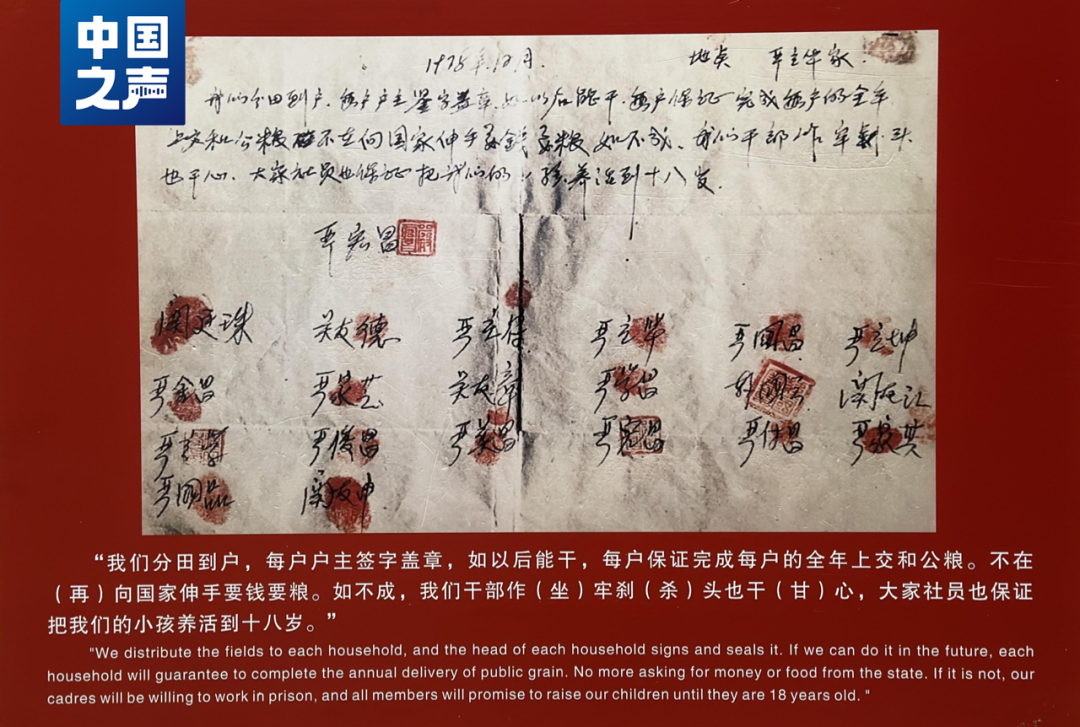 中国
之声
1978年12月. 地点 严立华家
我们分田到户,每户户主签字盖章,如以后能干,每户保证完成每户的全年
上交和公粮,不在向国家伸手要钱要粮,如不成,我们干部作牢刹头
也干心,大家社员也保证把我们的小孩养活到十八岁.
严宏昌
关廷珠 关友德 严立符 严立华 严国昌 严立坤
严金昌 严家芝 关友章 严学昌 韩国云 关友江
严立学 严俊昌 严美昌 严宏昌 严付昌 严家其
严国品 关友申
“我们分田到户,每户户主签字盖章,如以后能干,每户保证完成每户的全年上交和公粮。不在
(再)向国家伸手要钱要粮。如不成,我们干部作(坐)牢刹(杀)头也干(甘)心,大家社员也保证
把我们的小孩养活到十八岁。”
"We distribute the fields to each household, and the head of each household signs and seals it. If we can do it in the future, each
household will guarantee to complete the annual delivery of public grain. No more asking for money or food from the state. If it is not, our
cadres will be willing to work in prison, and all members will promise to raise our children until they are 18 years old. "